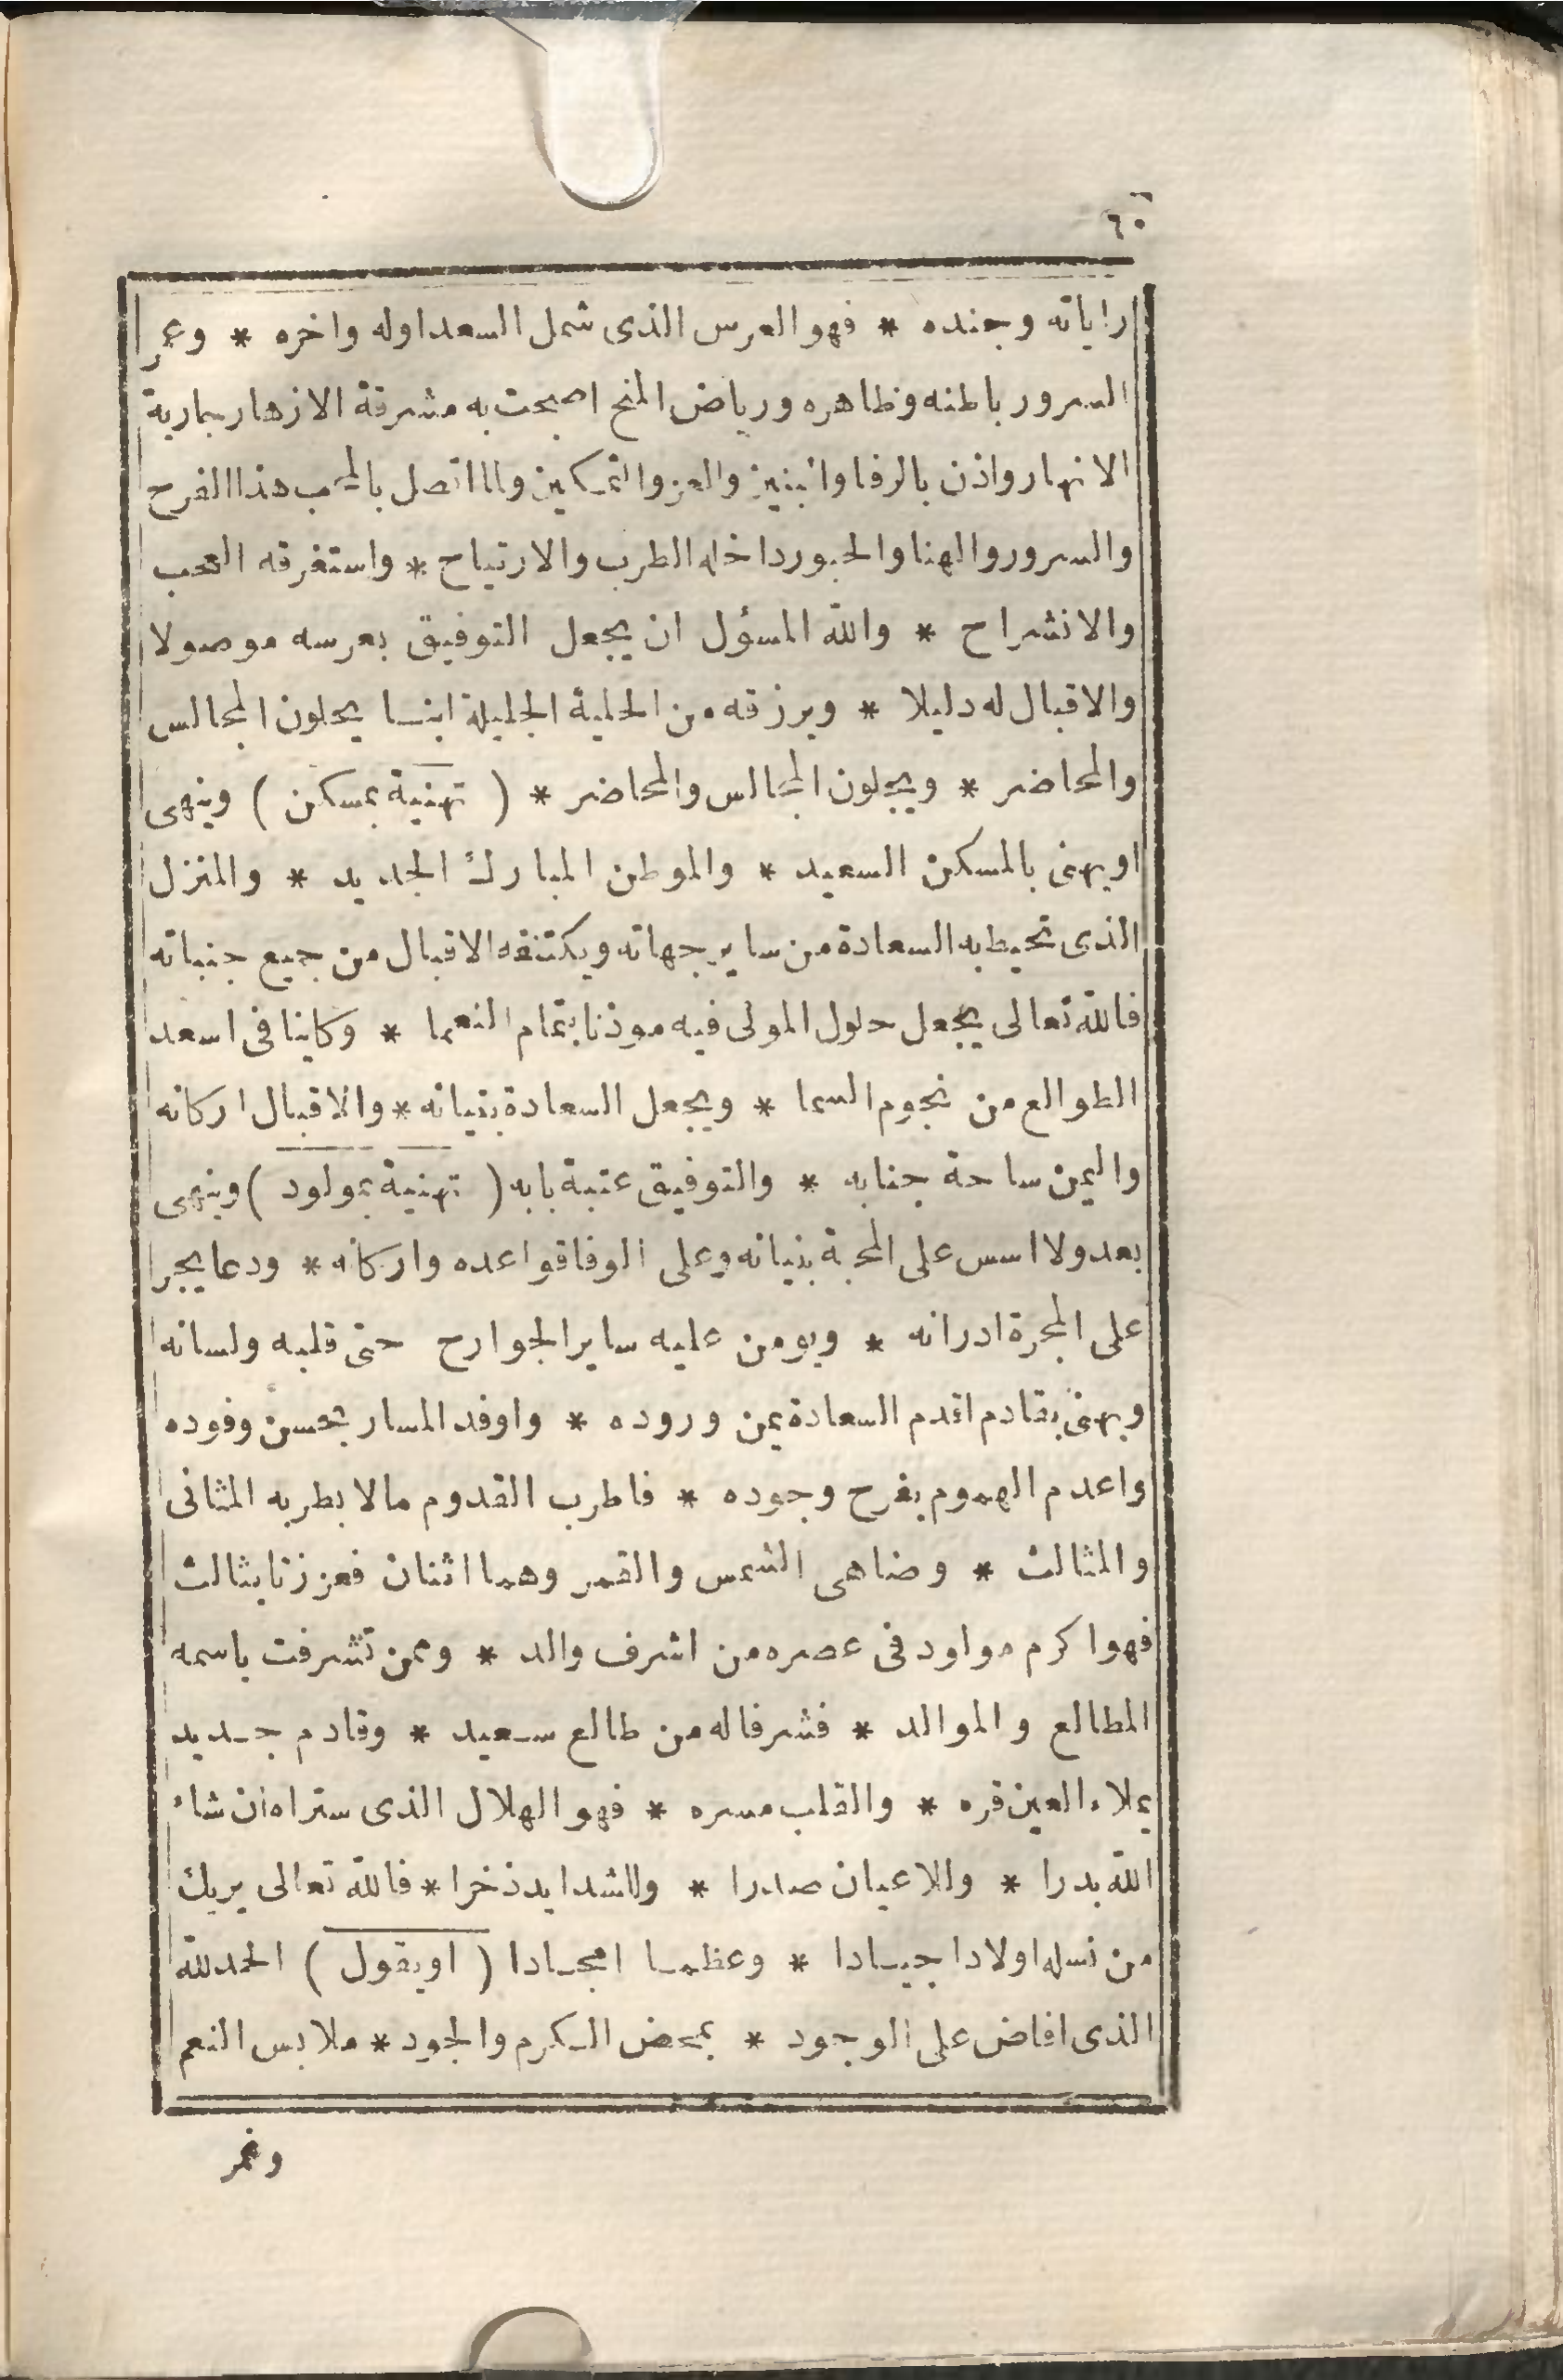 ٦٠
راياته وجنده * فهو العرس الذى شمل السعد اوله واخره * وعمر
السرور باطنه وظاهره ورياض المنح اصبحت به مشرقة الازهار جارية
الانهار واذن بالرفا والبنين والعز والتمكين ولما اتصل بالمحب هذا الفرح
والسرور والهنا والحبور داخله الطرب والارتياح * واستغرقه العجب
والانشراح * والله المسؤل ان يجعل التوفيق بعرسه موصولا
والاقبال له دليلا * ويرزقه من الحلية الجليلة ابنا يحلون المجالس
والمحاضر * ويجلون المجالس والمحاضر * ( تهنية بمسكن ) وينهى
او يهنى بالمسكن السعيد * والموطن المبارك الجديد * والمنزل
الذى تحيط به السعادة من ساير جهاته ويكتنفه الاقبال من جميع جنباته
فالله تعالى يجعل حلول المولى فيه موذنا بتمام النعما * وكاينا فى اسعد
الطوالع من نجوم السما * ويجعل السعادة بنيانه * والاقبال اركانه
واليمن ساحة جنابه * والتوفيق عتبة بابه ( تهنية بمولود ) وينهى
بعد ولا اسس على المحبة بنيانه وعلى الوفا قواعده واركانه * ودعا يجر
على المجرة ادرانه * ويومن عليه ساير الجوارح حتى قلبه ولسانه
ويهنى بقادم اقدم السعادة بمن وروده * واوفد المسار بحسن وفوده
واعدم الهموم بفرح وجوده * فاطرب القدوم مالا يطربه المثانى
والمثالث * وضاهى الشمس والقمر وهما اثنان فعززنا بثالث
فهو اكرم مولود فى عصره من اشرف والد * وممن تشرفت باسمه
المطالع والموالد * فشرفا له من طالع سعيد * وقادم جديد
يملاء العين قره * والقلب مسره * فهو الهلال الذى ستراه ان شاء
الله بدرا * وللاعيان صدرا * وللشدايد ذخرا * فالله تعالى يريك
من نسله اولادا جيادا * وعظما امجادا ( او يقول ) الحمد لله
الذى افاض على الوجود * بمحض الكرم والجود * ملابس النعم
وغمر